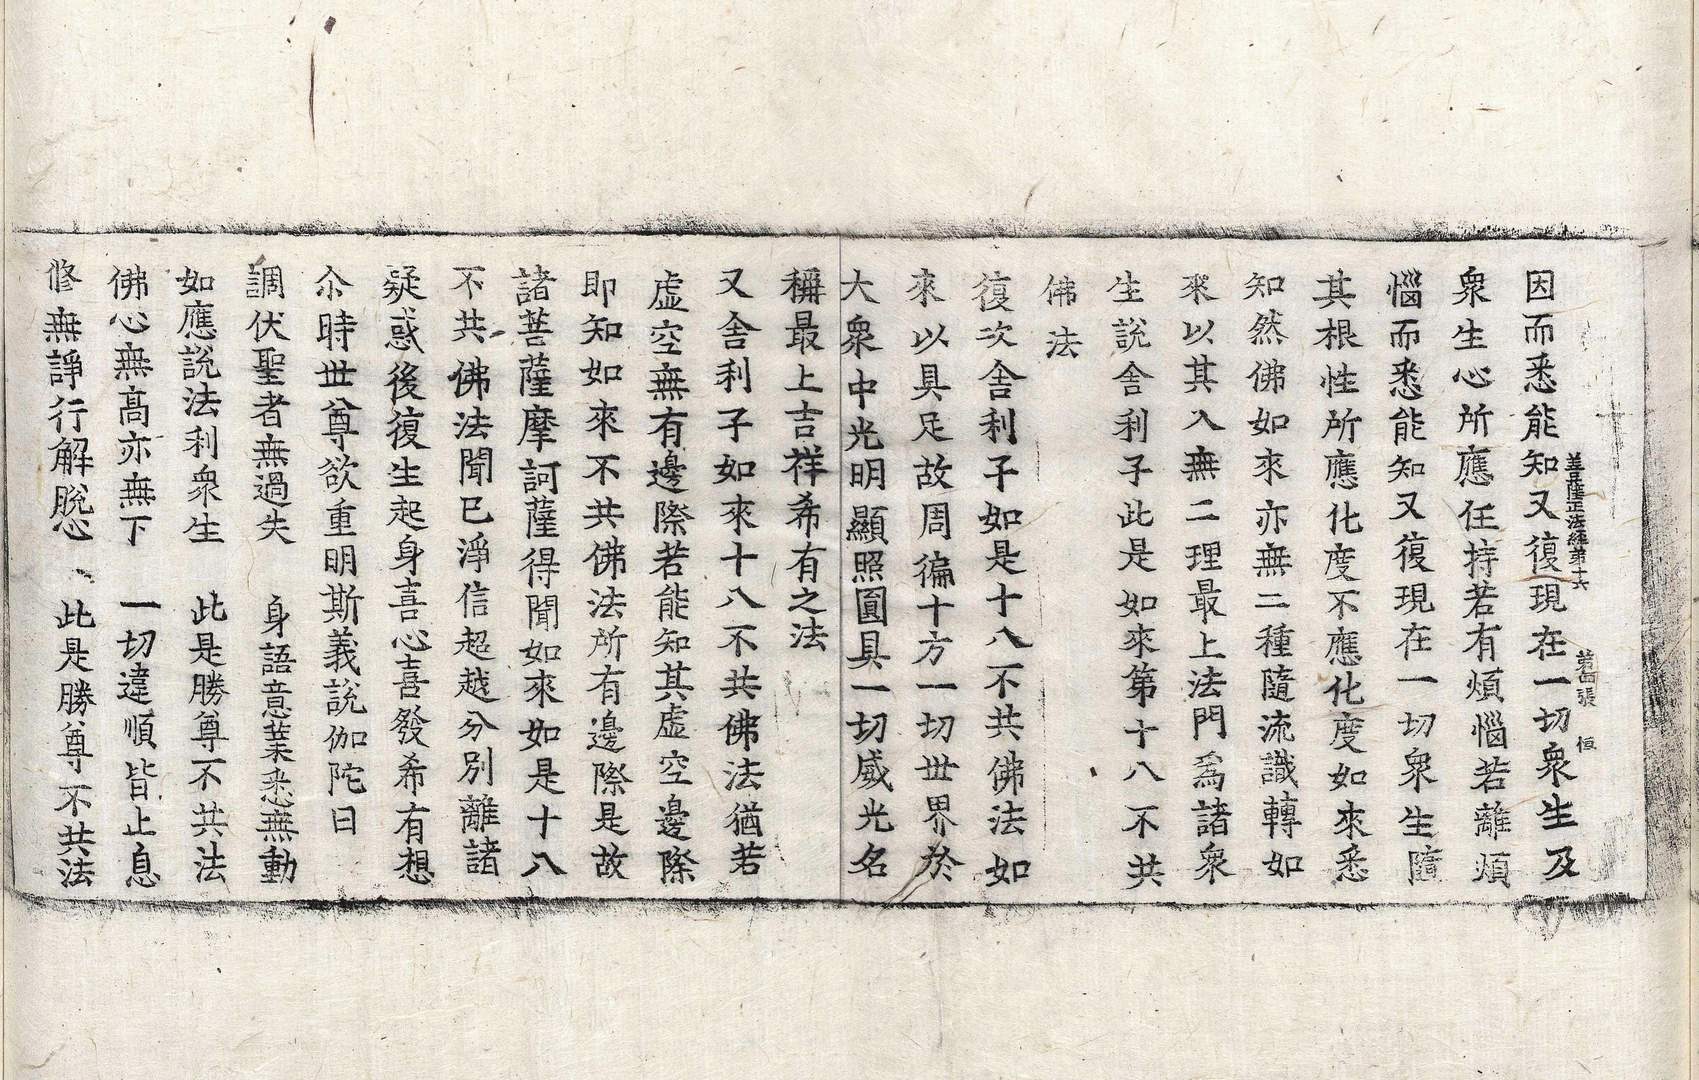 菩薩正法經第十六　第四張　恒
因而悉能知又復現在一切衆生及
衆生心所應任持若有煩惱若離煩
惱而悉能知又復現在一切衆生隨
其根性所應化度不應化度如來悉
知然佛如來亦無二種隨流識轉如
來以其入無二理最上法門爲諸衆
生說舍利子此是如來第十八不共
佛法
復次舍利子如是十八不共佛法如
來以具足故周徧十方一切世界於
大衆中光明顯照圓具一切威光名
稱最上吉祥希有之法
又舍利子如來十八不共佛法猶若
虛空無有邊際若能知其虛空邊際
即知如來不共佛法所有邊際是故
諸菩薩摩訶薩得聞如來如是十八
不共佛法聞已淨信超越分別離諸
疑惑後復生起身喜心喜發希有想
尒時世尊欲重明斯義說伽陀曰
調伏聖者無過失　身語意業悉無動
如應說法利衆生　此是勝尊不共法
佛心無高亦無下　一切違順皆止息
修無諍行解脫心　此是勝尊不共法